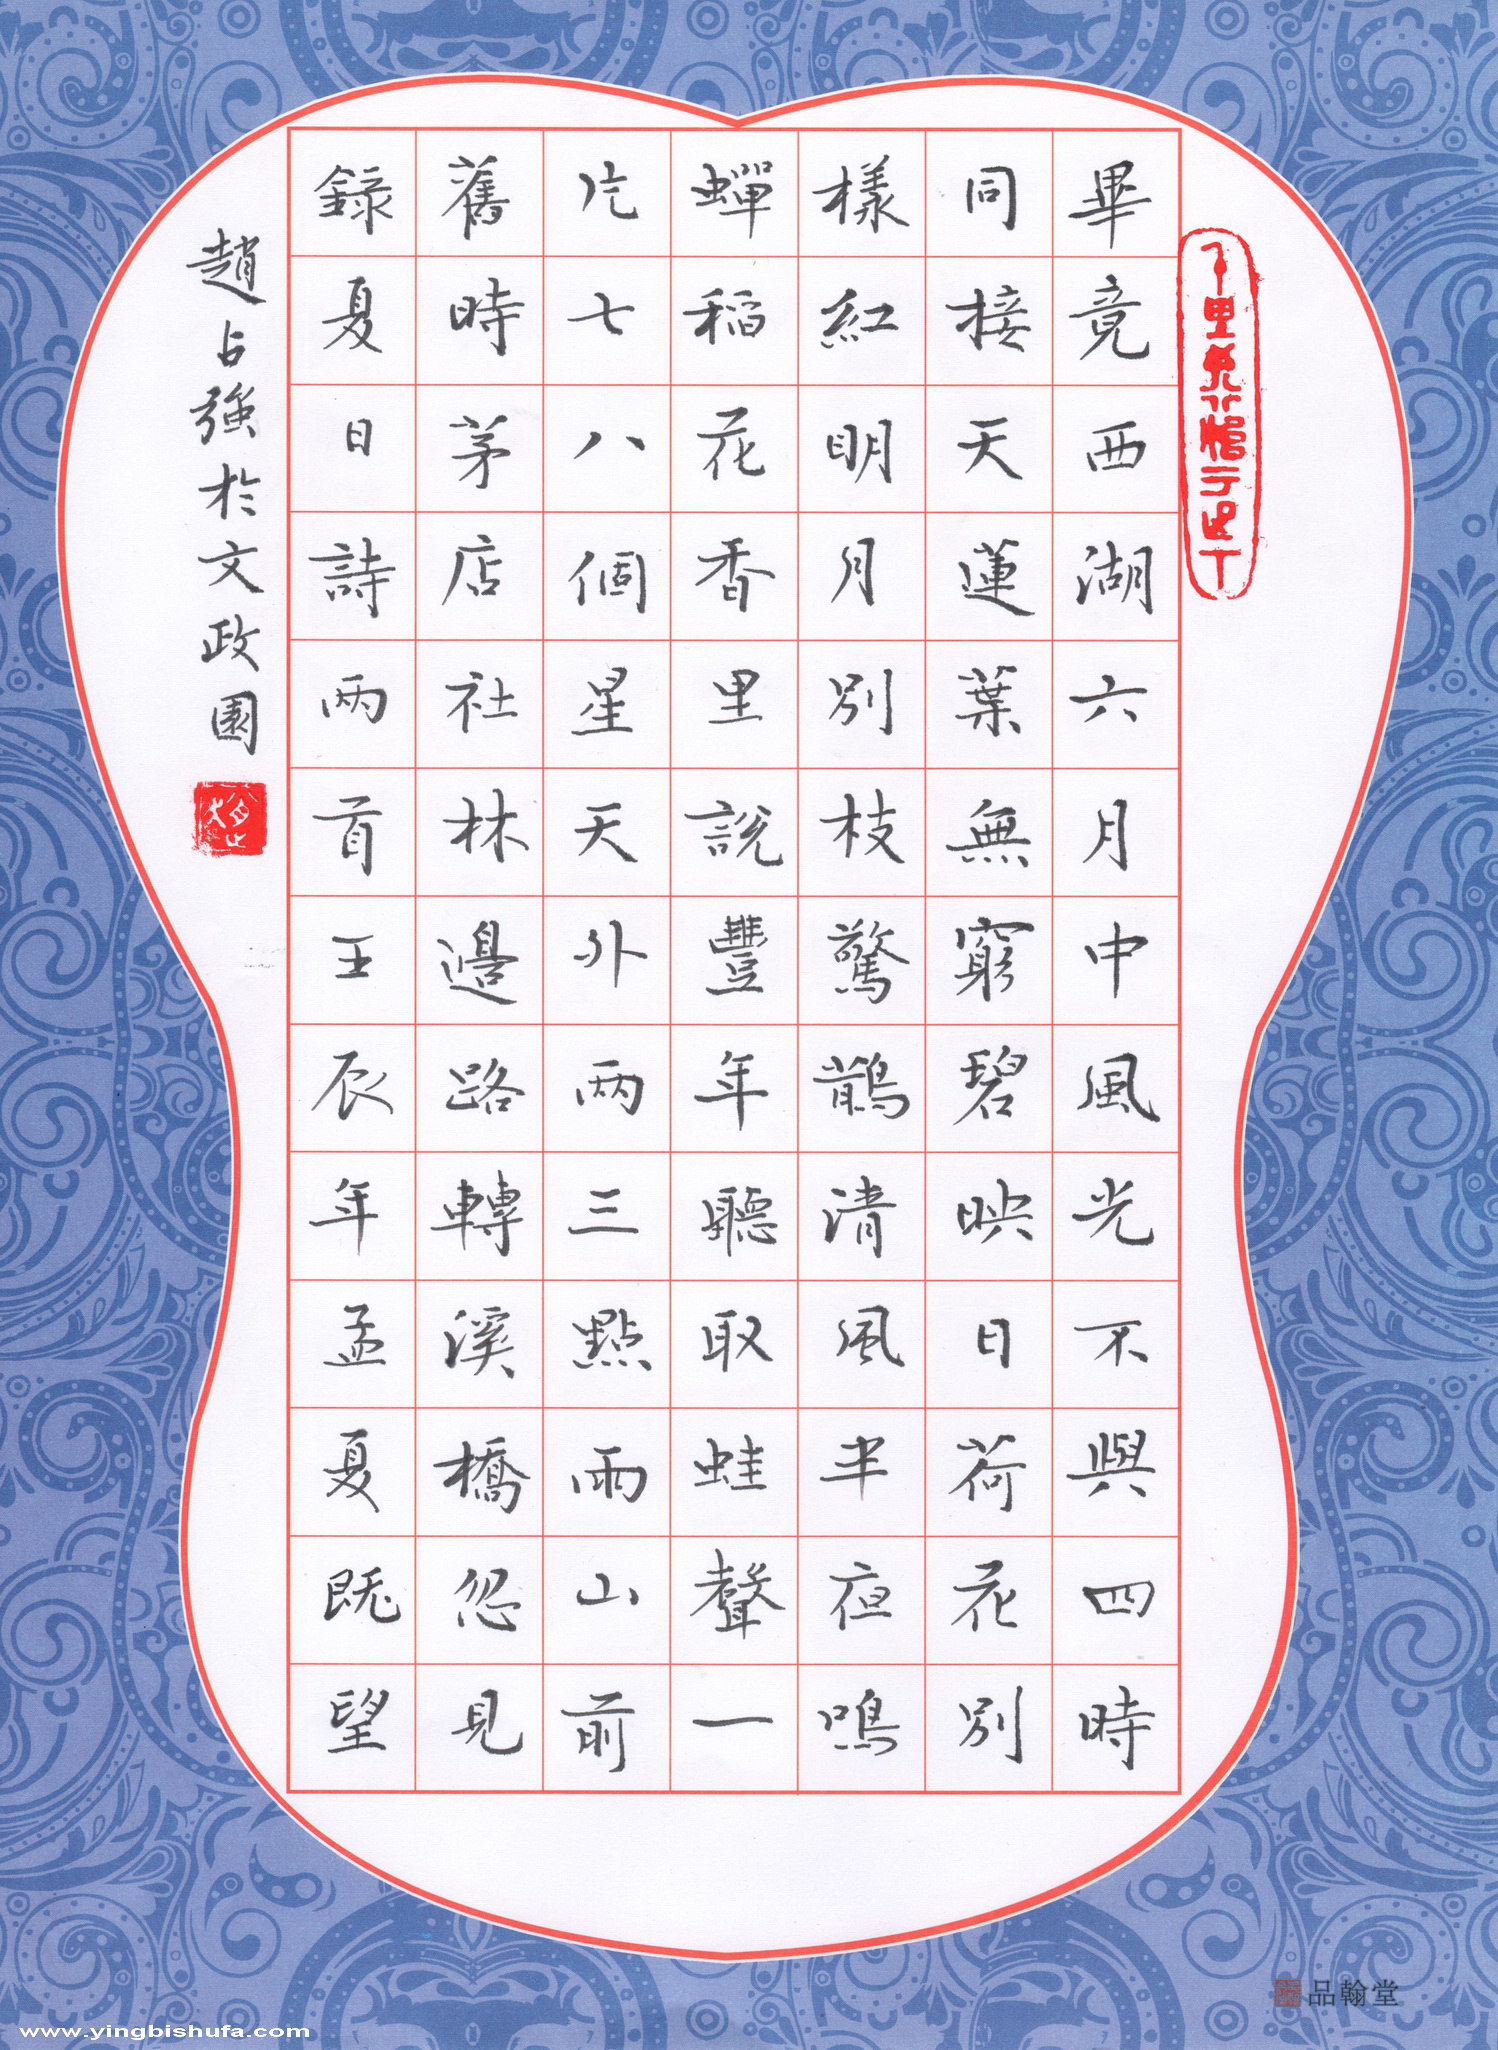 畢竟西湖六月中風光不與四時
同接天蓮葉無窮碧映日荷花別
樣紅明月別枝驚鵲清風半夜鳴
蟬稻花香里說豐年聽取蛙聲一
片七八個星天外兩三點雨山前
舊時茅店社林邊路轉溪橋忽見
錄夏日詩兩首壬辰年孟夏既望
趙占強於文政園
品翰堂
www.yingbishufa.com